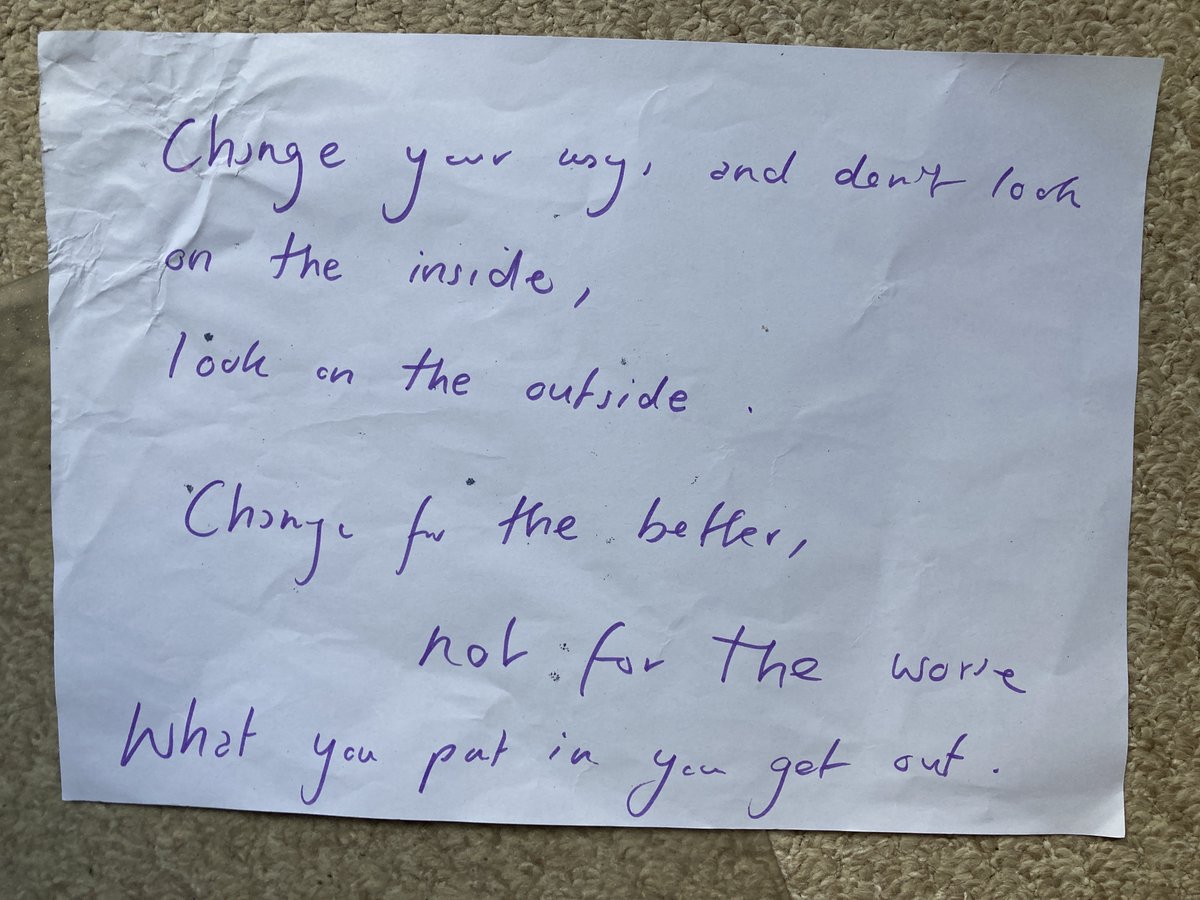 Change your way, and don't look
on the inside,
look on the outside.
Change for the better,
not for the worse
What you put in you get out.